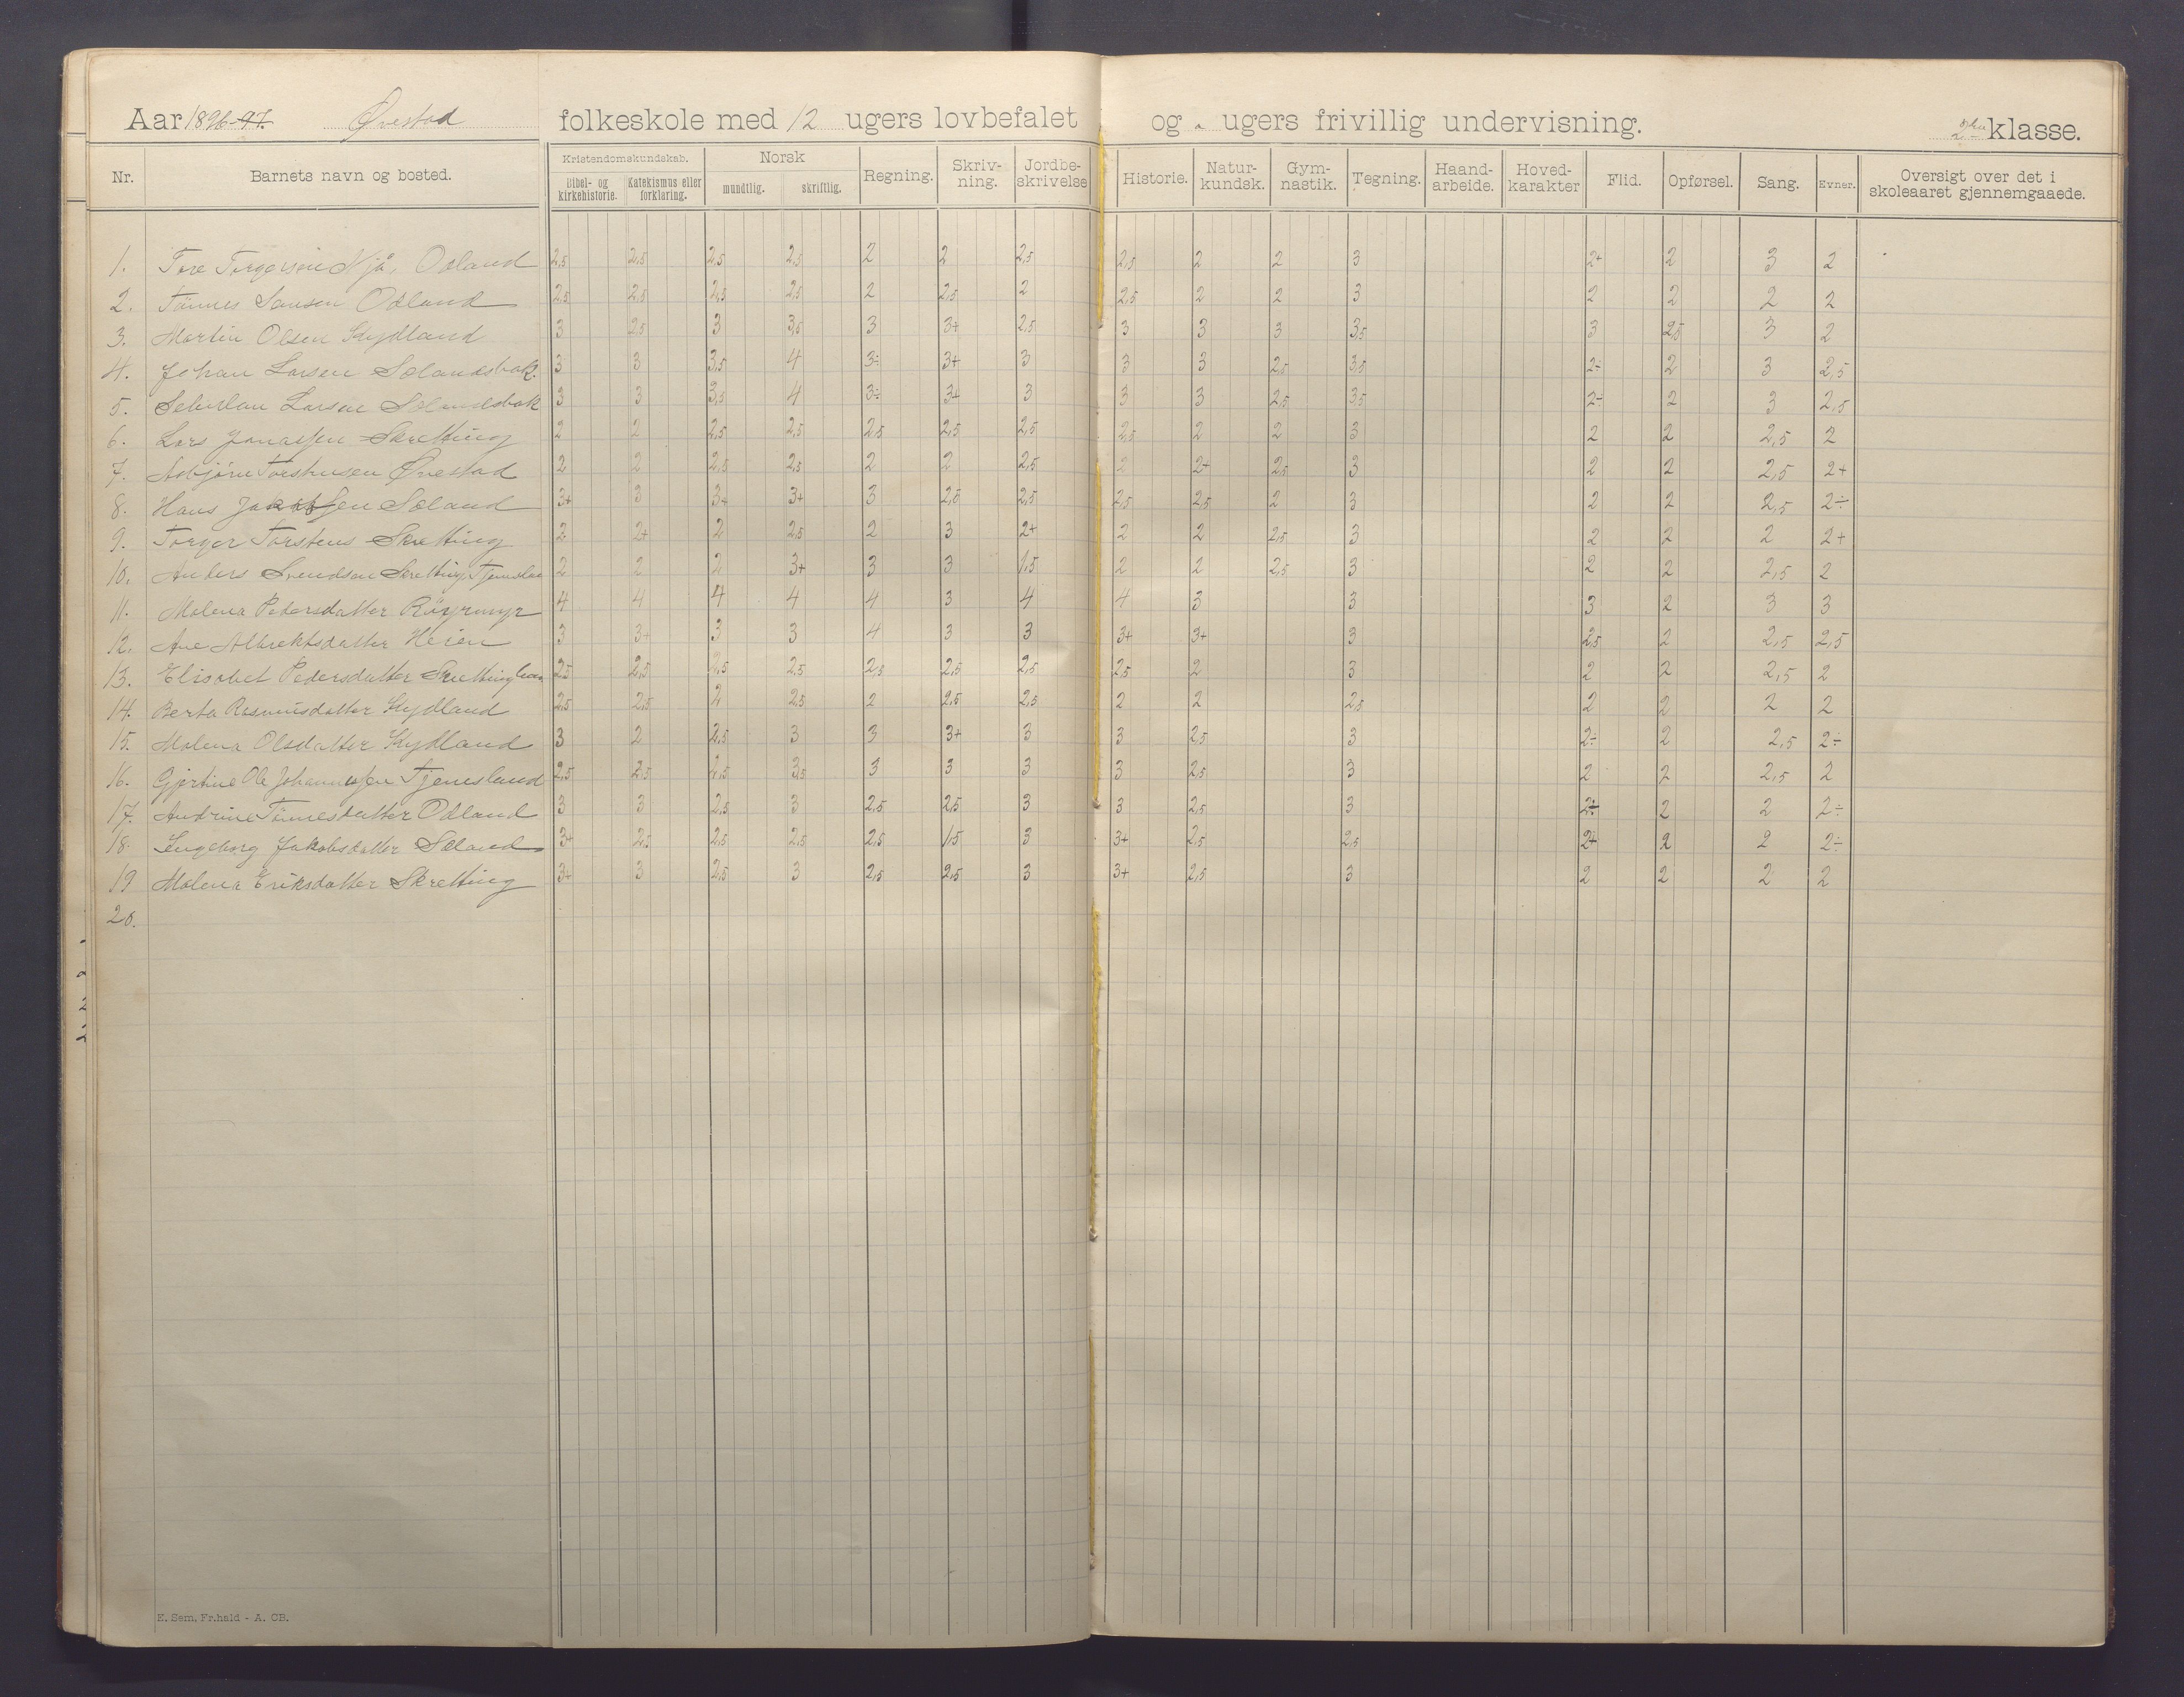 Aar 1896-97. Øvestad folkeskole med 12 ugers lovbefalet og " ugers frivillig undervisning. 2den klasse.
Nr. Barnets navn og bosted. Kristendomskundskab. Bibel- og kirkehistorie. Katekismus eller forklaring. Norsk mundtlig. skriftlig. Regning. Skriv-ning. Jordbe-skrivelse Historie. Natur-kundsk. Gym-nastik. Tegning. Haand-arbeide. Hoved-karakter Flid. Opførsel. Sang. Evner. Oversigt over det i skoleaaret gjennemgaaede.
1. Tore Torgersen Njå, Odland 2,5 2,5 2,5 2,5 2 2 2,5 2,5 2 2 3 2+ 2 3 2
2. Tønnes Jansen Odland 2,5 2,5 2,5 2,5 2 2,5 2 2,5 2 2 3 2 2 2 2
3. Martin Olsen Kydland 3 2,5 3 3,5 3 3+ 2,5 3 3 3 3,5 3 2,5 3 2
4. Johan Larsen Sælandsbak. 3 3 3,5 4 3÷ 3+ 3 3 3 2,5 3,5 2÷ 2 3 2,5
5. Larsen Sælandsbak 3 3 3,5 4 3÷ 3+ 3 3 3 2,5 3,5 2÷ 2 3 2,5
6. Lars Jonassen Skretting 2 2 2,5 2,5 2,5 2,5 2,5 2,5 2 2 3 2 2 2,5 2
7. Asbjørn Torstensen Øvestad 2 2 2,5 2,5 2 2 2,5 2 2+ 2,5 3 2 2 2,5 2+
8. Hans Jakobsen Sæland 3+ 3 3+ 3+ 3 2,5 2,5 2,5 2,5 2 3 2 2 2,5 2÷
9. Torger Torstens Skretting 2 2+ 2 2,5 2 3 2+ 2 2 2,5 3 2 2 2 2+
10. Anders Svendsen Skretting, 2 2 2 3+ 3 3 1,5 2 2 2,5 3 2 2 2,5 2
11. Malena Pedersdatter Röyrmyr 4 4 4 4 4 3 4 4 3 3 3 2 3 3
12. Ane Albrektsdatter Heien 3 3+ 3 3 4 3 3 3+ 3+ 3 2,5 2 2,5 2,5
13. Elisabet Pedersdatter 2,5 2,5 2,5 2,5 2,5 2,5 2,5 2,5 2 3 2 2 2,5 2
14. Berta Rasmusdatter Kydland 2,5 2,5 2 2,5 2 2,5 2,5 2 2 2,5 2 2 2 2
15. Malena Olsdatter Kydland 3 2 2,5 3 3 3+ 3 3 2,5 3 2÷ 2 2,5 2÷
16. Gjertine Ole Johannessen Tjensland 2,5 2,5 2,5 3,5 3 3 3 3 2,5 3 2 2 2,5 2
17. Andrine Tönnesdatter Odland 3 3 2,5 3 2,5 2,5 3 3 2,5 3 2÷ 2 2 2÷
18. Ingeborg Jakobsdatter Sæland 3+ 2,5 2,5 2,5 2,5 1,5 3 3+ 2,5 2,5 2+ 2 2 2÷
19 Malena Eriksdatter Skretting 3+ 3 2,5 3 2,5 2,5 3 3+ 2,5 3 2 2 2 2
20.
E. Sem, Fr.hald - A. CB.